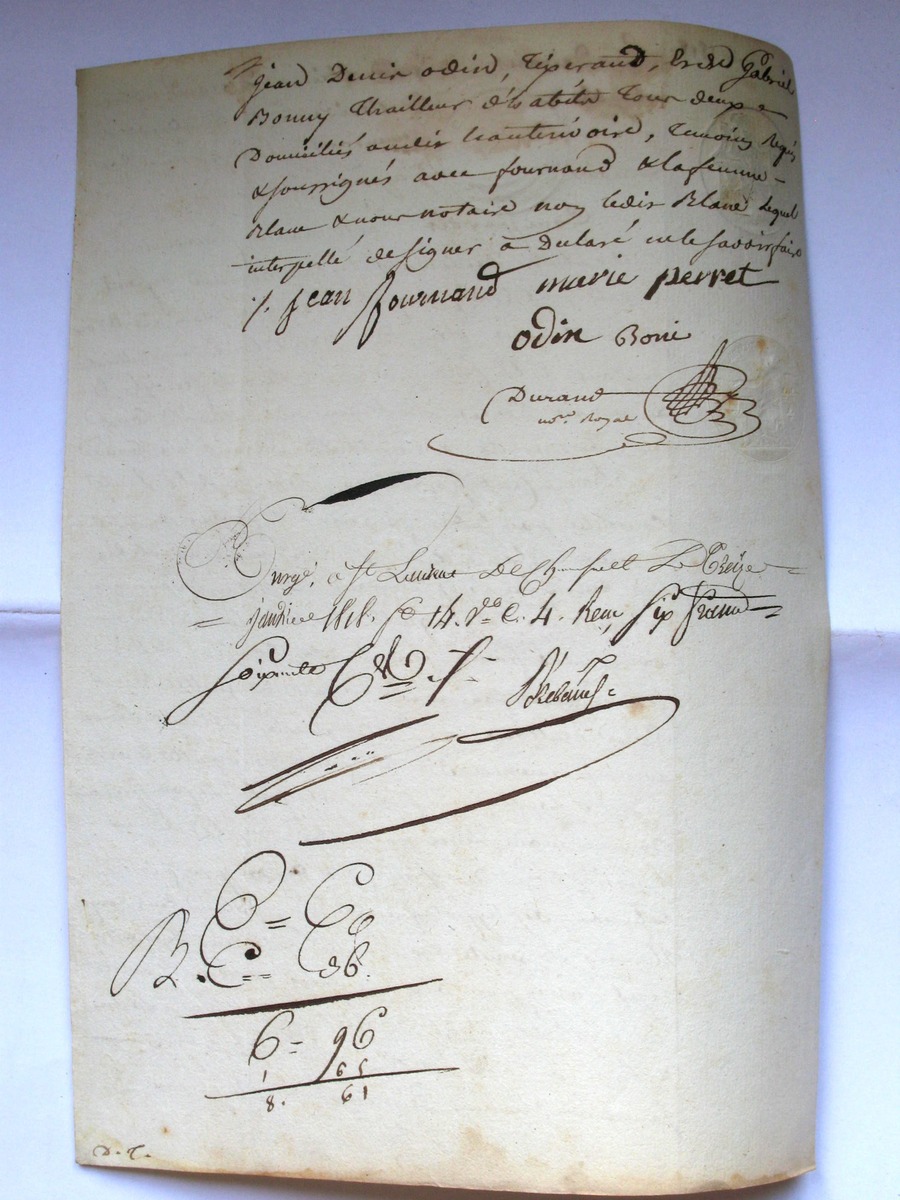 jean Denis odin, Tiserand, Et Sr Gabriel
Bonny Thailleur d'habits Tous deux
Domiciliés audit hauterivoire, Temoins Requis
& soussignés avec fournand & la femme
Blanc & nous notaire non ledit Blanc lequel
interpellé de signer a declaré ne le savoir faire
jean fournand marie perret
odin Boni
Durand
nore. Royal
Enrgé, a St Laurent De Chamousset Le Treize
janvier 1818. fo 14. Vo C. 4. Recu Six francs
Soixante
6 = 60
B.
36
6 = 96
1 65
8. 61
D. T.